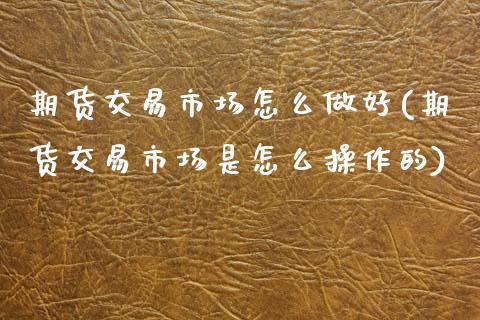 期货交易市场怎么做好(期
货交易市场是怎么操作的)